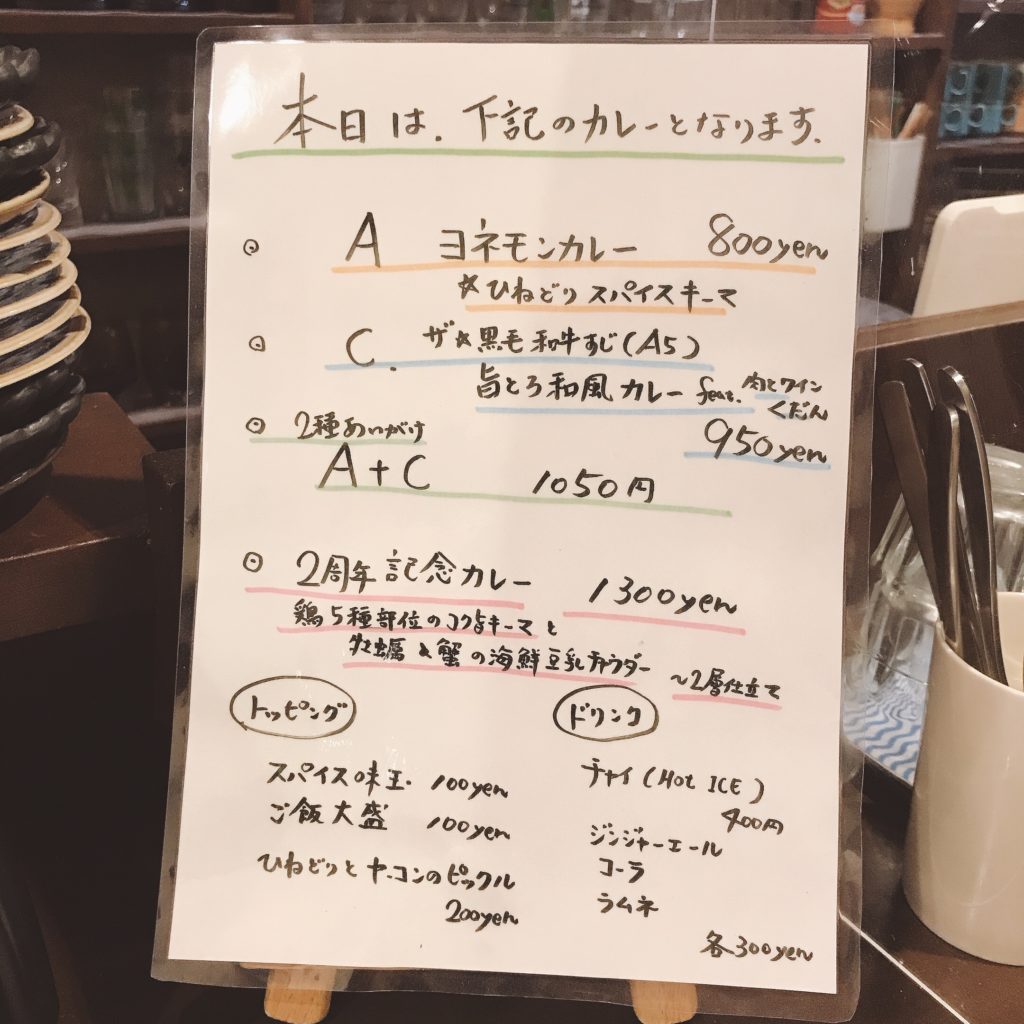 本日は、下記のカレーとなります.
◎ A ヨネモンカレー 800yen
☆ひねどりスパイスキーマ
◎ C. ザ☆黒毛和牛すじ(A5)
旨とろ和風カレー feat. 肉とワイン
くだん
950yen
◎ 2種あいがけ
A+C 1050円
◎ 2周年記念カレー 1300yen
鶏5種部位のコク旨キーマと
牡蠣&蟹の海鮮豆乳チャウダー
~2層仕立て
トッピング
スパイス味玉. 100yen
ご飯大盛 100yen
ひねどりとヤーコンのピックル
200yen
ドリンク
チャイ(Hot ICE)
400円
ジンジャーエール
コーラ
ラムネ
各300yen